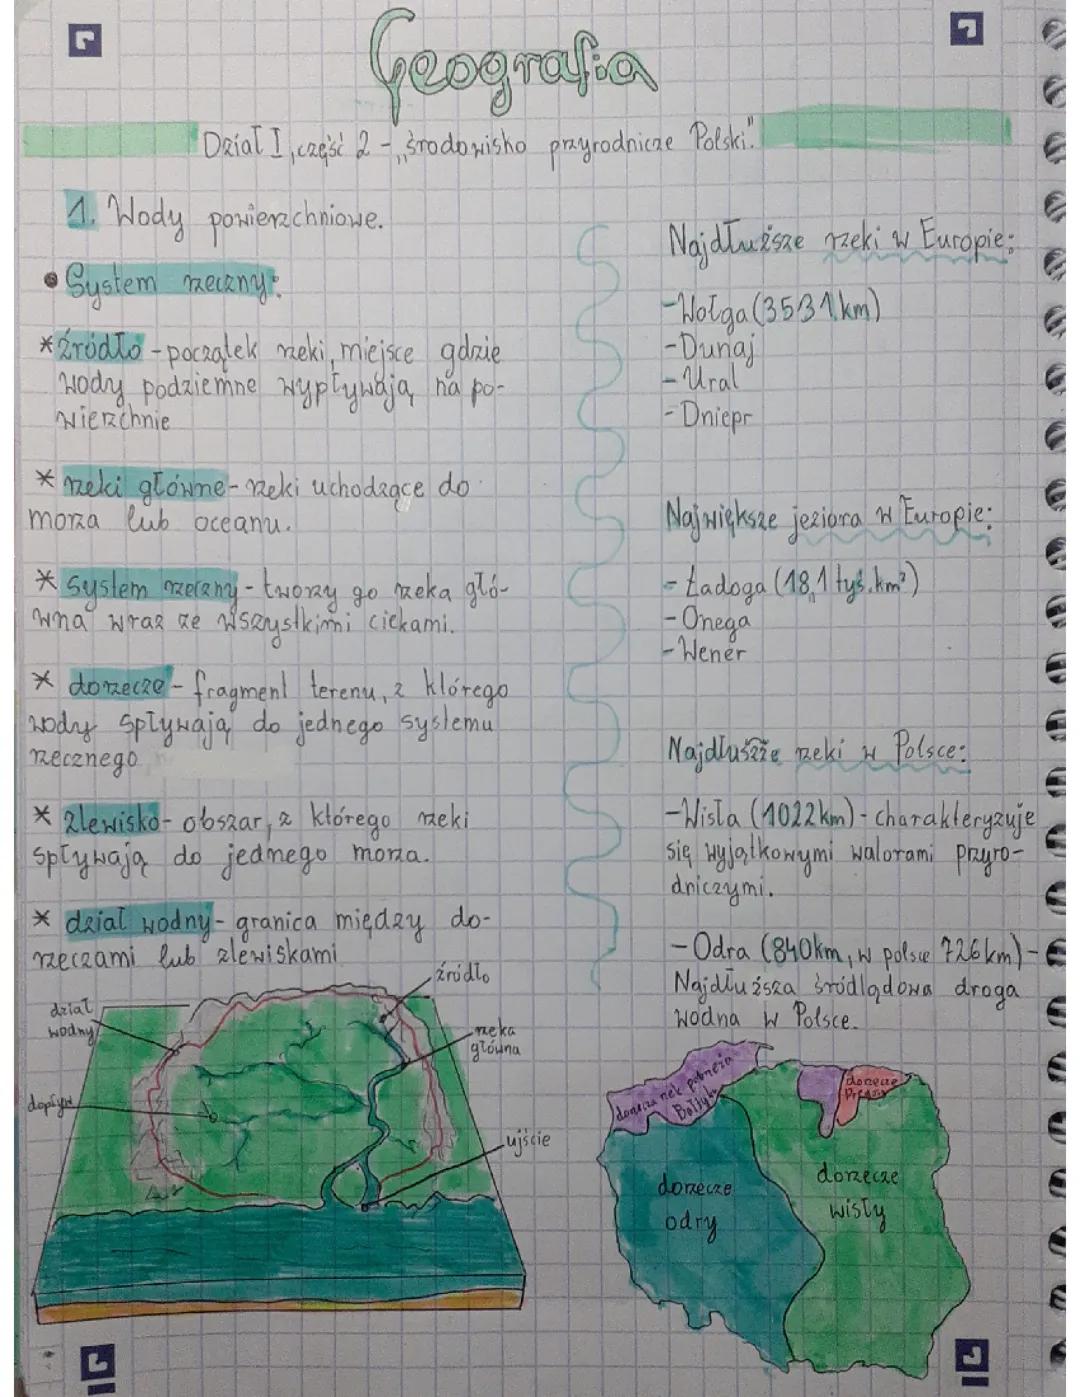 Geografia
Dział I, część 2 - „środowisko przyrodnicze Polski."
1. Wody powierzchniowe.
• System rzeczny:
* źródło - początek rzeki, miejsce gdzie
wody podziemne wypływają na po-
wierzchnie
* rzeki główne - rzeki uchodzące do
morza lub oceanu.
* system rzeczny - tworzy go rzeka głó-
wna wraz ze wszystkimi ciekami.
* dorzecze - fragment terenu, z którego
wody spływają do jednego systemu
rzecznego
* zlewisko - obszar, z którego rzeki
spływają do jednego morza.
* dział wodny - granica między do-
rzeczami lub zlewiskami
źródło
dział
wodny
rzeka
główna
dopływ
ujście
Najdłuższe rzeki w Europie:
- Wołga (3531 km)
- Dunaj
- Ural
- Dniepr
Największe jeziora w Europie:
- Ładoga (18,1 tyś. km²)
- Onega
- Wener
Najdłuższe rzeki w Polsce:
- Wisła (1022 km) - charakteryzuje
się wyjątkowymi walorami przyro-
dniczymi.
- Odra (840km, w polsce 726km) -
Najdłuższa śródlądowa droga
wodna w Polsce.
dorzecza rzek pobrzeża
Bałtyku
dorzecze
Pregoły
dorzecze
odry
dorzecze
wisły